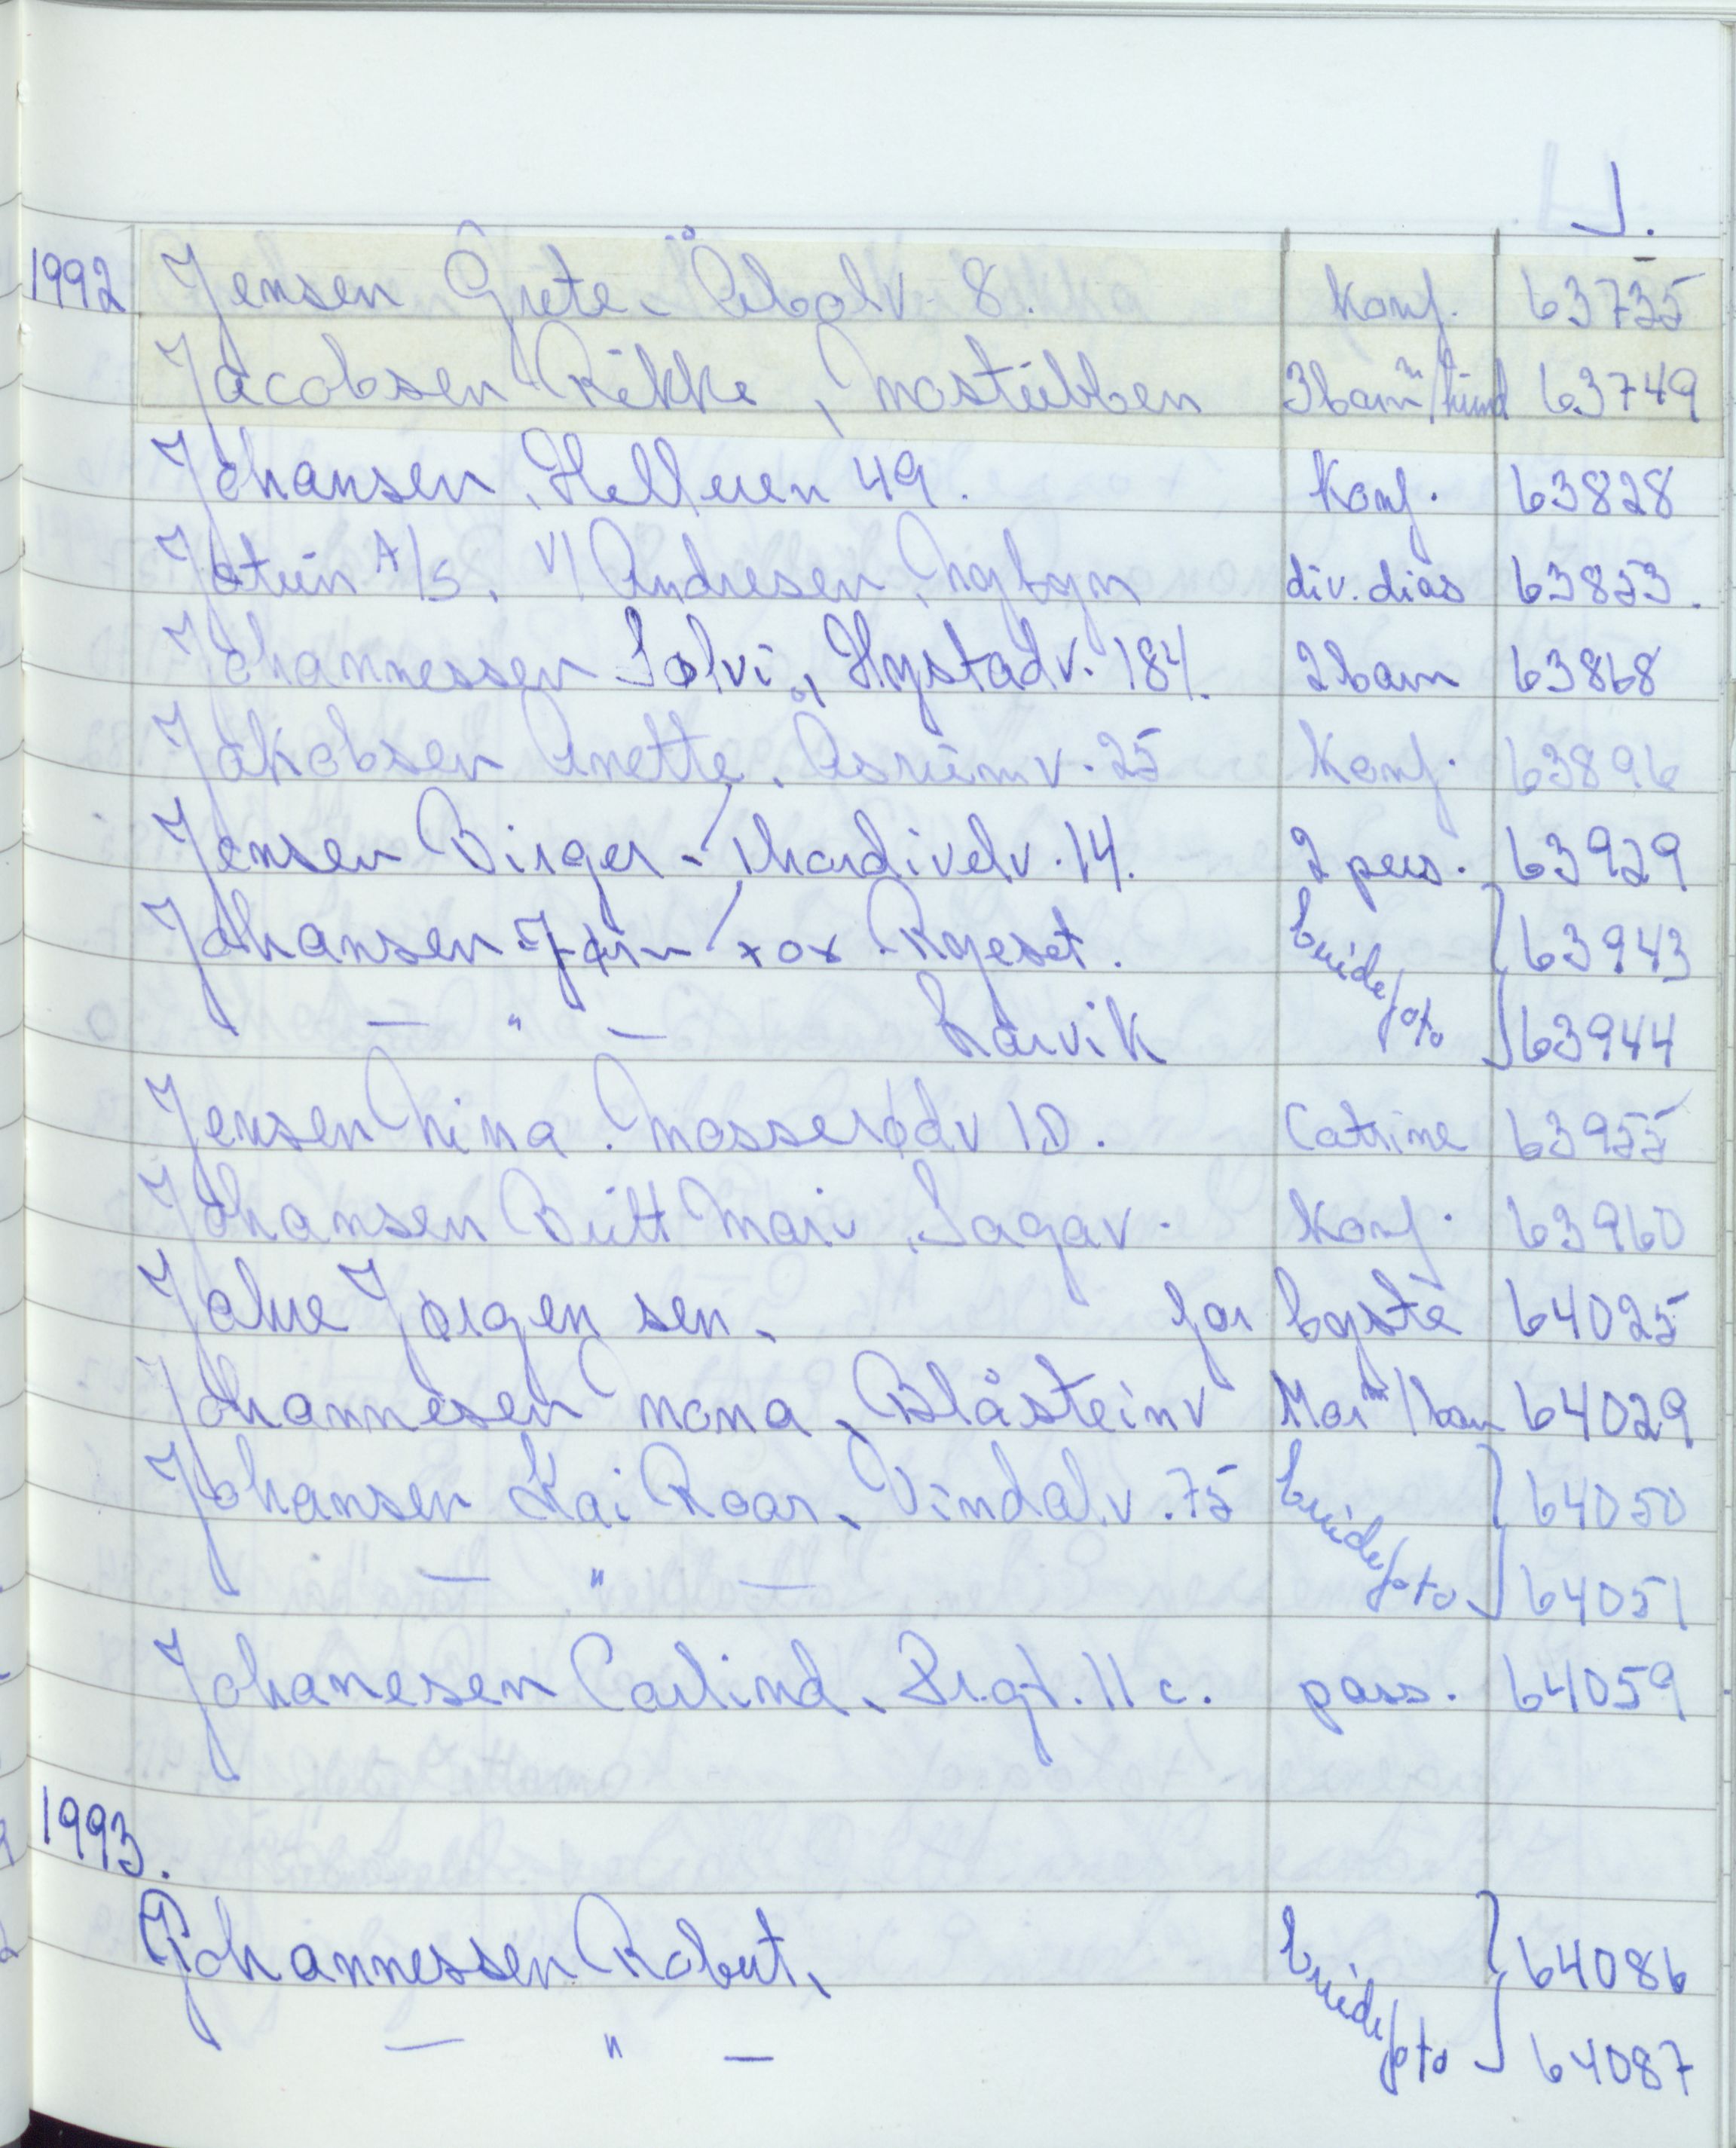 J.
1992 Jensen Grete. Åbolv. 8. Konf. 63735
Jacobsen Rikke, Mostubben 3barn m/hund 63749
Johansen, Helleren 49. Konf. 63828
Jotun A/S. v/ Andresen, Nybyn div. dias 63853.
Johannessen Sølvi, Hystadv. 184. 2 barn 63868
Jakobsen Anette. Åsrumv. 25 Konf. 63896
Jensen Birger - 14. 2 pers. 63929
Johansen Ryeset. brudefoto 63943
— " — Larvik 63944
Jensen Nina. Mosserødv 1D. Catrine 63955
Johansen Britt Mari, Sagav. Konf. 63960
Jahre Jørgen sen. for byste 64025
Johannesen Mona, Blåsteinv Mor m/barn 64029
Johansen Kai Roar, Vindalv. 75 brudefoto 64050
— " — 64051
Johanesen Carlind. 11 c. pass. 64059
1993.
Johannessen Robert, brudefoto 64086
— " — 64087